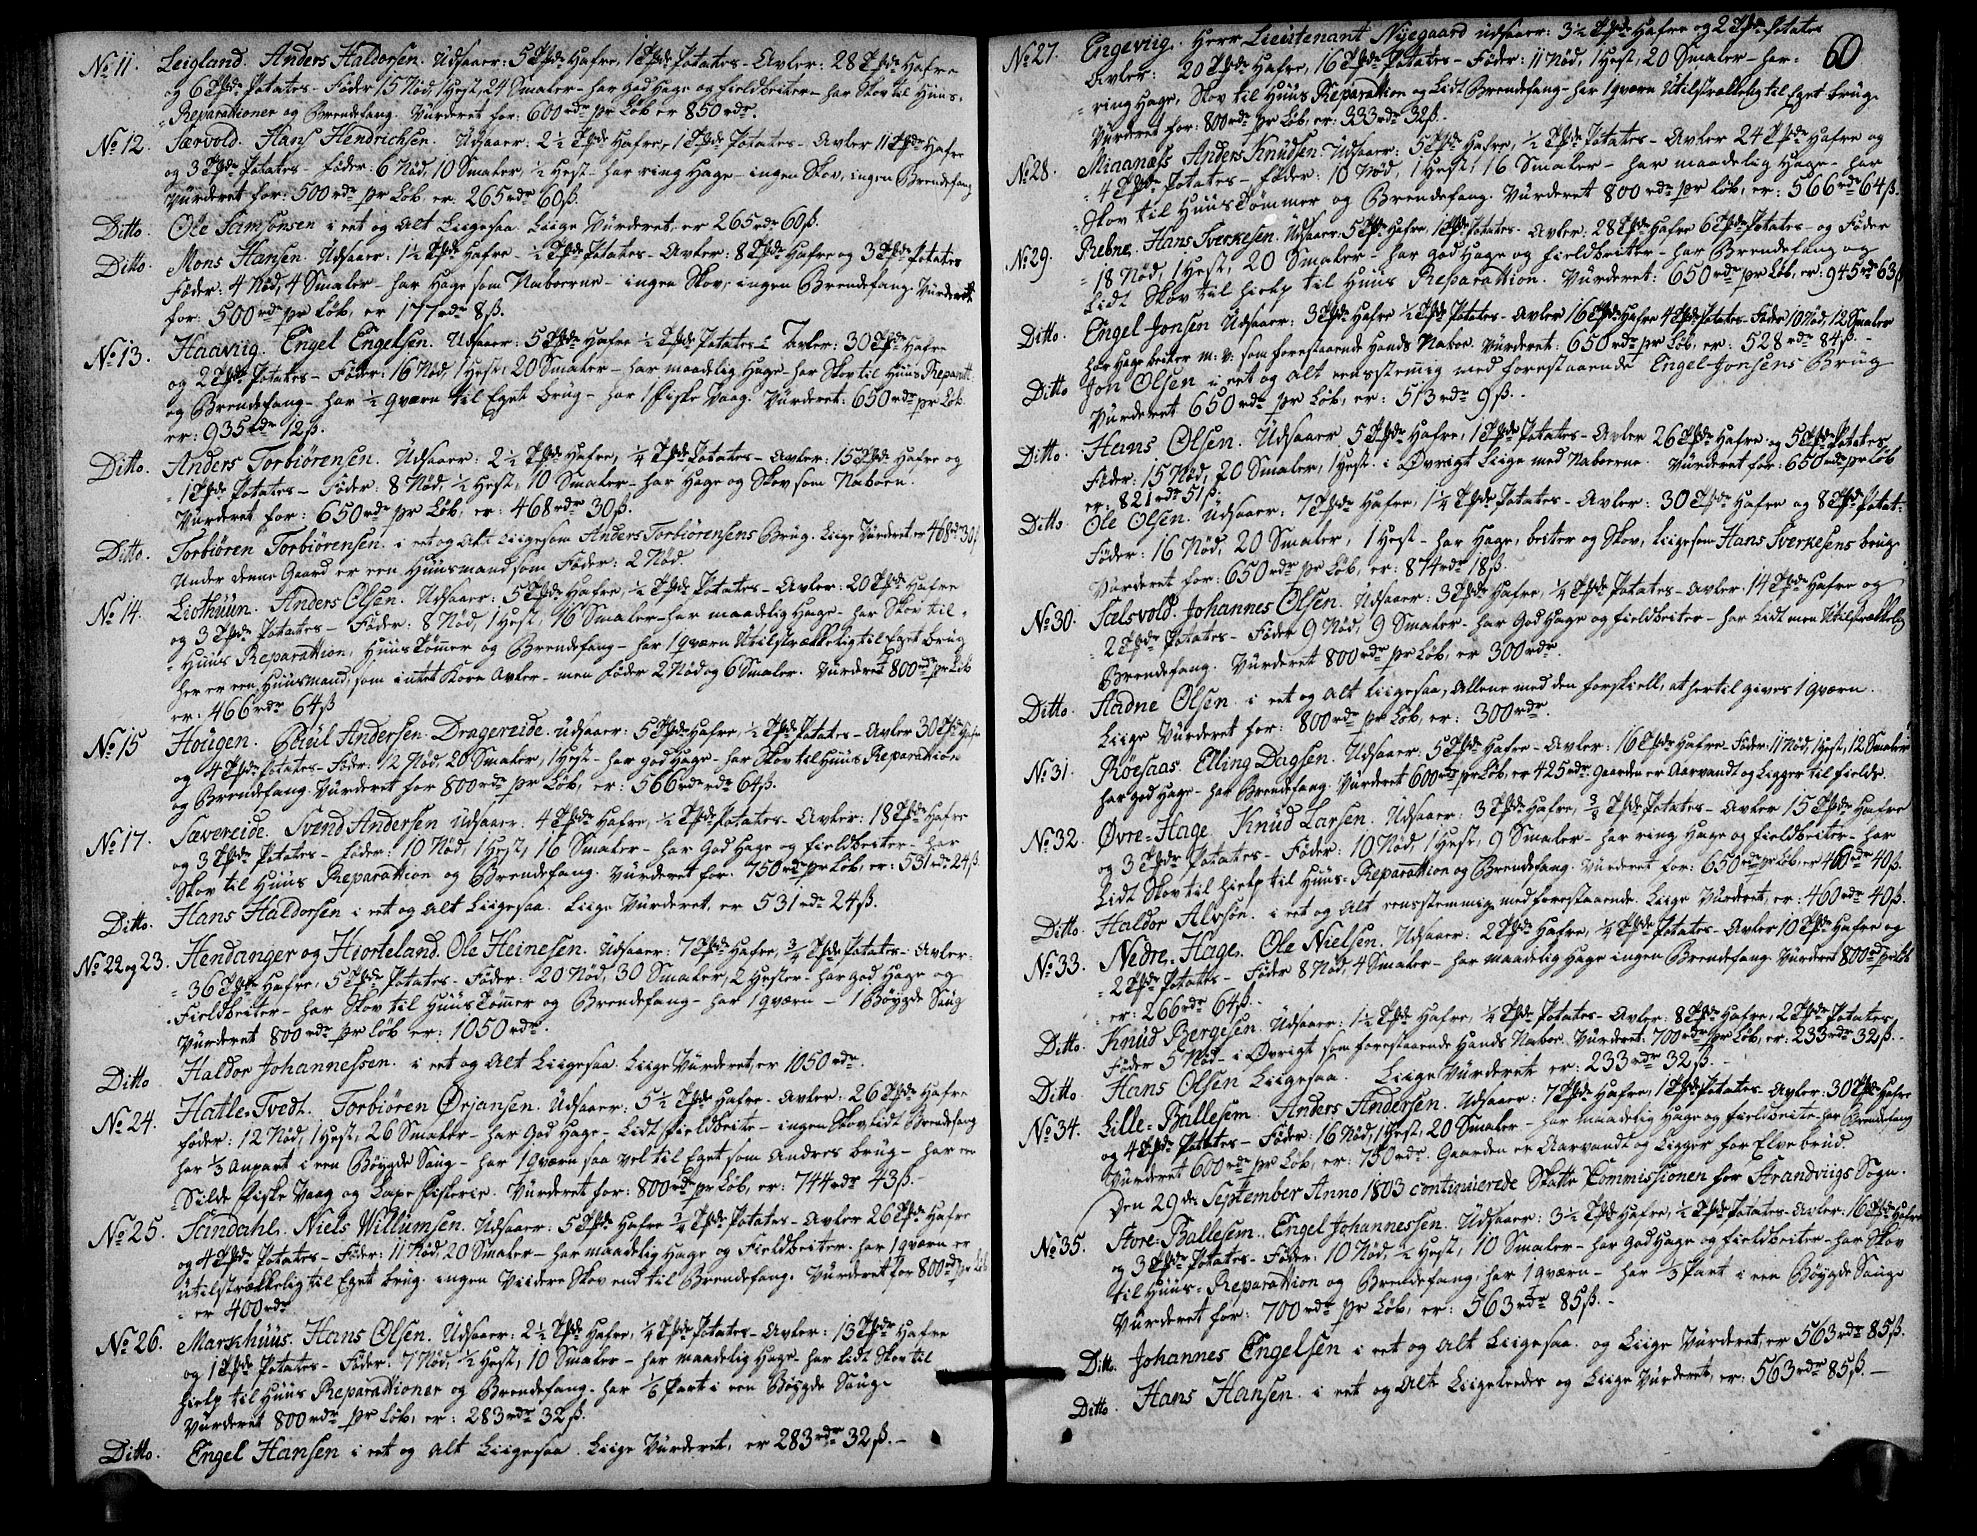 No 11. Leigland. Anders Haldorsen. Udsaaer: 5 Tdr Hafre, 1 Tde Potates - Avler: 28 Tdr Hafre
og 6 Tdr Potates - Föder 15 Nöd, 1 Hest, 24 Smaler - har God Hage og fieldbeiter - har Skov til Huus-
Reparationer og Brendefang. Vurderet for: 600 rdr pr Löb er 850 rdr.
No 12. Særvold. Hans Hendrichsen. Udsaaer: 2 1/2 Tdr Hafre, 1 Tde Potates - Avler 11 Tdr Hafre
og 3 Tdr Potates - föder: 6 Nöd, 10 Smaler, 1/2 Hest - har ring Hage - ingen Skov, ingen Brendefang
Vurderet for: 500 rdr pr Löb, er: 265 rdr 60 ß.
Ditto. Ole Samsonsen i eet og alt Liigesaa. Liige Vurderet, er 265 rdr 60 ß.
Ditto. Mons Hansen. Udsaaer: 1 1/2 Tdr Hafre - 1/2 Tde Potates - Avler: 8 Tdr Hafre og 3 Tdr Potates
Föder: 4 Nöd, 4 Smaler - har Hage som Naboerne - ingen Skov, ingen Brendefang. Vurderet
for: 500 rdr pr Löb, er 177 rdr 8 ß.
No 13. Haaviig. Engel Engelsen. Udsaaer: 5 Tdr Hafre 1/2 Tde Potates - Avler: 30 Tdr Hafre
og 2 Tdr Potates - Föder: 16 Nöd, 1 Hest, 20 Smaler - har maadelig Hage - har Skov til Huus Reparatt:
og Brendefang - har 1/2 qværn til Eget brug - har 1 Fiske Vaag. Vurderet: 650 rdr pr Löb
er: 935 rdr 12 ß.
Ditto. Anders Torbiörensen. Udsaaer: 2 1/2 Tdr Hafre, 1/4 Tde Potates - Avler: 15 Tdr Hafre og
1 Tde Potates - Föder: 8 Nöd, 1/2 Hest, 10 Smaler - har Hage og Skov som Naboen.
Vurderet for: 650 rdr pr Löb, er: 468 rdr 30 ß.
Ditto. Torbiören Torbiörensen. i eet og alt liigesom Anders Torbiörensens Brug. Liige Vurderet, er 468 rdr 30 ß
Under denne Gaard er een Huusmand som Föder: 2 Nöd.
No 14. Liothuun. Anders Olsen. Udsaaer: 5 Tdr Hafre, 1/2 Tde Potates - Avler: 20 Tdr Hafre
og 3 Tdr Potates - Föder: 8 Nöd, 1 Hest, 16 Smaler - har maadelig Hage - har Skov til
Huus Reparattion, Huus Tömer og Brendefang - har 1 qværn Utilstrækkelig til Eget brug
her er een Huusmand, som intet Korn Avler - men föder 2 Nöd og 6 Smaler. Vurderet 800 rdr pr Löb
er: 466 rdr 64 ß
No 15 Hougen. Poul Andersen Dragereide. Udsaaer: 5 Tdr Hafre, 1/2 Tde Potates - Avler 30 Tdr Hafre
og 4 Tdr Potates - Föder: 12 Nöd, 20 Smaler, 1 Hest - har god Hage - har Skov til Huus Reparation
og Brendefang. Vurderet for 800 rdr pr Löb, er: 566 rdr 64 ß.
No 17. Sævereide. Svend Andersen Udsaaer: 4 Tdr Hafre, 1/2 Tde Potates - Avler: 18 Tdr Hafre
og 3 Tdr Potates - Föder: 10 Nöd, 1 Hest, 16 Smaler - har God Hage og fieldbeiter - har
Skov til Huus Reparation og Brendefang. Vurderet for: 750 rdr pr Löb, er: 531 rdr 24 ß.
Ditto. Hans Haldorsen i eet og Alt Liigesaa. Liige Vurderet, er 531 rdr 24 ß.
No 22 og 23. Hendanger og Hiorteland. Ole Heinesen. Udsaaer: 7 Tdr Hafre, 3/4 Tde Potates - Avler:
36 Tdr Hafre, 5 Tdr Potates - Föder: 20 Nöd, 30 Smaler, 2 Hester - har god Hage og
Fieldbeiter - har Skov til Huus Tömer og Brendefang - har 1 qværn - 1 Böygde Saug
Vurderet 800 rdr pr Löb er: 1050 rdr.
Ditto Haldor Johannessen. i eet og Alt Liigesaa. Liige Vurderet, er 1050 rdr.
No 24. Hatle-Tvedt. Torbiören Örjansen. Udsaaer: 5 1/2 Tdr Hafre - Avler: 26 Tdr Hafre
föder: 12 Nöd, 1 Hest, 26 Smaler - har God Hage - Lidt fieldbeite - ingen Skov, lidt Brendefang
har 1/3 Anpart i een Böygde Saug - har 1 qværn saa vel til Eget som Andres brug - har en
Silde Fiske Vaag og Laxe Fiskerie. Vurderet for: 800 rdr pr Löb, er: 744 rdr 43 ß.
No 25. Sandahl. Niels Willumsen. Udsaaer: 5 Tdr Hafre 1/2 Tde Potates - Avler 26 Tdr Hafre
og 4 Tdr Potates - Föder: 11 Nöd, 20 Smaler - har maadelig Hage og Fieldbeiter. har 1 qværn er
utilstrækkelig til Eget brug. ingen Viidere Skov end til Brendefang. Vurderet for 800 rdr pr Löb
er 400 rdr.
No 26. Markhuus. Hans Olsen. Udsaaer: 2 1/2 Tdr Hafre, 1/4 Tde Potates - Avler: 13 Tdr Hafre
og 1 Tde Potates - Föder: 7 Nöd, 1/2 Hest, 10 Smaler - har maadelig Hage - har lidt Skov til
hielp til Huus Reparattioner og Brendefang. har 1/6 Part i een Böygde Saug
Vurderet 800 rdr pr Löb, er: 283 rdr 32 ß.
Ditto. Engel Hansen i eet og Alt Liigesaa. Liige Vurderet, er 283 rdr 32 ß.
60
No 27. Engeviig. Herr Lieutenant Nyegaard udsaaer: 3 1/2 Tdr Hafre og 2 Tdr Potates
Avler: 20 Tdr Hafre, 16 Tdr Potates - Föder: 11 Nöd, 1 Hest, 20 Smaler - har
ring Hage, Skov til Huus Reparattion og Lidt Brendefang - har 1 qværn Utilstrækkelig til Eget brug.
Vurderet for: 800 rdr pr Löb, er: 333 rdr 32 ß.
No 28. Miaanæss Anders Knudsen. Udsaaer: 5 Tdr Hafre, 1/2 Tde Potates - Avler 24 Tdr Hafre og
4 Tdr Potates - föder: 10 Nöd, 1 Hest, 16 Smaler - har maadelig Hage - har
Skov til Huus Tömmer og Brendefang. Vurderet 800 rdr pr Löb, er: 566 rdr 64 ß.
No 29. Rebne. Hans Sverkesen. Udsaaer: 5 Tdr Hafre, 1 Tde Potates - Avler: 28 Tdr Hafre 6 Tdr Potates - og Föder
18 Nöd, 1 Hest, 20 Smaler - har god Hage og fieldbeiter - har Brendefang og
Lidt Skov til hielp til Huus Reparattion. Vurderet: 650 rdr pr Löb, er: 945 rdr 63 ß
Ditto Engel Jonsen Udsaaer: 3 Tdr Hafre 1/2 Tde Potates - Avler 16 Tdr Hafre 4 Tdr Potates - Föder 10 Nöd, 12 Smaler
har Hage beiter m: v: som forestaaende Hands Naboe. Vurderet: 650 rdr pr Löb, er: 528 rdr 84 ß.
Ditto Jon Olsen i eet og Alt eensstemig med forestaaende Engel Jonsens Brug
Vurderet 650 rdr pr Löb, er: 513 rdr 9 ß.
Ditto. Hans Olsen. Udsaaer 5 Tdr Hafre, 1 Tde Potates - Avler 26 Tdr Hafre og 5 Tdr Potates
Föder: 15 Nöd, 20 Smaler, 1 Hest. i Övrigt Liige med Naboerne. Vurderet for: 650 rdr pr Löb
er: 821 rdr 51 ß.
Ditto. Ole Olsen. Udsaaer: 7 Tdr Hafre, 1 1/4 Tde Potates - Avler: 30 Tdr Hafre og 8 Tdr Potat:
Föder: 16 Nöd, 20 Smaler, 1 Hest - har Hage, beiter og Skov, liigesom Hans Sverkesens brug.
Vurderet for: 650 rdr pr Löb, er: 874 rdr 18 ß.
No 30. Salsvold. Johannes Olsen. Udsaaer: 3 Tdr Hafre, 1/4 Tde Potates - Avler: 14 Tdr Hafre og
2 Tdr Potates - Föder 9 Nöd, 9 Smaler - har God Hage og fieldbeiter - har Lidt men Utilstrækkelig
Brendefang. Vurderet 800 rdr pr Löb, er 300 rdr.
Ditto. Aadne Olsen. i eet og Alt Liigesaa, Allene med den forskiell, at hertil gives 1 qværn.
Liige Vurderet for: 800 rdr pr Löb, er: 300 rdr.
No 31. Röesaas. Elling Dagsen. Udsaaer: 5 Tdr Hafre - Avler: 16 Tdr Hafre - Föder: 11 Nöd, 1 Hest, 12 Smaler
har god Hage - har Brendefang. Vurderet 600 rdr pr Löb, er 425 rdr. Gaarden er Aarvandt og Ligger til fields.
No 32. Övre-Hage. Knud Larsen. Udsaaer: 3 Tdr Hafre, 3/8 Tde Potates - Avler 15 Tdr Hafre
og 3 Tdr Potates - Föder: 10 Nöd, 1 Hest, 9 Smaler - har ring Hage og fieldbeiter - har
Lidt Skov til hielp til Huus-Reparattion og Brendefang. Vurderet for: 650 rdr pr Löb, er 460 rdr 40 ß.
Ditto. Haldor Alvsön. i eet og Alt eensstemmig med forestaaende. Liige Vurderet, er: 460 rdr 40 ß.
No 33. Nedre-Hage. Ole Nielsen. Udsaaer: 2 Tdr Hafre, 1/4 Tde Potates - Avler 10 Tdr Hafre og
2 Tdr Potates - Föder 8 Nöd, 4 Smaler - har maadelig Hage ingen Brendefang. Vurderet 800 rdr pr Löb
er: 266 rdr 64 ß.
Ditto. Knud Bergesen. Udsaaer: 1 1/2 Tdr Hafre, 1/4 Tde Potates - Avler: 8 Tdr Hafre, 2 Tdr Potates,
Föder 5 Nöd - i Övrigt som forestaaende Hands Naboe. Vurderet: 700 rdr pr Löb, er: 233 rdr 32 ß.
Ditto. Hans Olsen Liigesaa. Liige Vurderet er: 233 rdr 32 ß.
No 34. Lille-Ballesem. Anders Andersen. Udsaaer: 7 Tdr Hafre, 1 Tde Potates - Avler: 30 Tdr Hafre
og 4 Tdr Potates - Föder: 16 Nöd, 1 Hest, 20 Smaler - har maadelig Hage og fieldbeite - har Brendefang
Vurderet 600 rdr pr Löb, er: 750 rdr. Gaarden er Aarvandt og Ligger for Elvebrud.
Den 29de September Anno 1803 continuerede Skatte Commissionen for Strandviigs Sogn.
No 35. Store-Ballesem. Engel Johannessen. Udsaaer: 3 1/2 Tdr Hafre, 1/2 Tde Potates - Avler: 16 Tdr Hafre
og 3 Tdr Potates - Föder: 10 Nöd, 1/2 Hest, 10 Smaler - har God Hage og fieldbeiter - har Skov
til Huus-Reparattion og Brendefang, har 1 qværn - har 1/3 Part i een Böygde Sauge
Vurderet for: 700 rdr pr Löb, er: 563 rdr 85 ß.
Ditto. Johannes Engelsen i eet og Alt Liigesaa. og Liige Vurderet, er 563 rdr 85 ß.
Ditto. Hans Hansen. i eet og Alt Liigeleedes og Liige Vurderet, er: 563 rdr 85 ß.